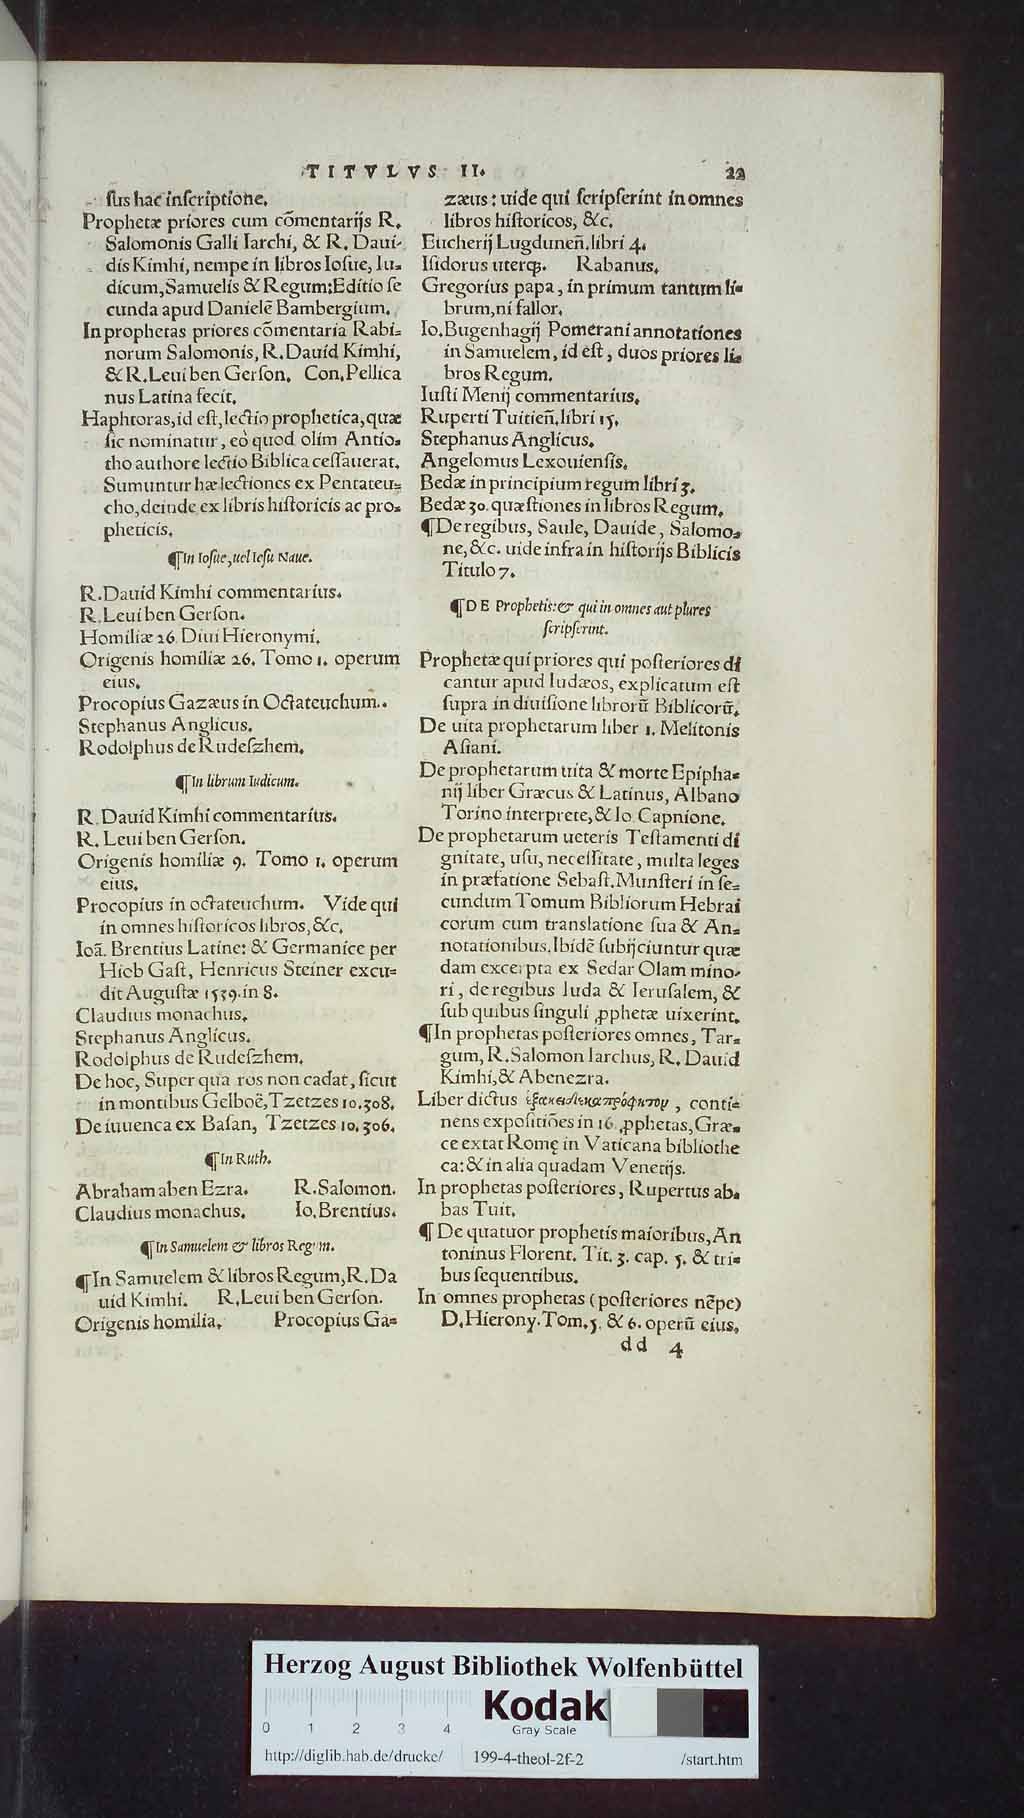 TITVLVS II. 22
sus hac inscriptione.
Prophetæ priores cum cōmentarijs R.
Salomonis Galli Iarchi, & R. Daui-
dis Kimhi, nempe in libros Iosue, Iu-
dicum, Samuelis & Regum: Editio se
cunda apud Danielē Bambergium.
In prophetas priores cōmentaria Rabi-
norum Salomonis, R. Dauid Kimhi,
& R. Leui ben Gerson. Con. Pellica
nus Latina fecit.
Haphtoras, id est, lectio prophetica, quæ
sic nominatur, eò quod olim Antio-
tho authore lectio Biblica cessauerat.
Sumuntur hæ lectiones ex Pentateu-
cho, deinde ex libris historicis ac pro-
pheticis.
¶ In Iosue, uel Iesu Naue.
R. Dauid Kimhi commentarius.
R. Leui ben Gerson.
Homiliæ 26. Diui Hieronymi.
Origenis homiliæ 26. Tomo 1. operum
eius.
Procopius Gazæus in Octateuchum.
Stephanus Anglicus.
Rodolphus de Rudeszhem.
¶ In librum Iudicum.
R. Dauid Kimhi commentarius.
R. Leui ben Gerson.
Origenis homiliæ 9. Tomo 1. operum
eius.
Procopius in octateuchum. Vide qui
in omnes historicos libros, &c.
Ioā. Brentius Latine: & Germanice per
Hieb Gast, Henricus Steiner excu-
dit Augustæ 1539. in 8.
Claudius monachus.
Stephanus Anglicus.
Rodolphus de Rudeszhem.
De hoc, Super quā ros non cadat, sicut
in montibus Gelboë, Tzetzes 10.308.
De iuuenca ex Basan, Tzetzes 10.306.
¶ In Ruth.
Abraham aben Ezra. R. Salomon.
Claudius monachus. Io. Brentius.
¶ In Samuelem & libros Regum.
¶ In Samuelem & libros Regum, R. Da
uid Kimhi. R. Leui ben Gerson.
Origenis homilia. Procopius Ga-
zæus: uide qui scripserint in omnes
libros historicos, &c.
Eucherij Lugduneñ. libri 4.
Isidorus uterq;. Rabanus.
Gregorius papa, in primum tantum li-
brum, ni fallor.
Io. Bugenhagij Pomerani annotationes
in Samuelem, id est, duos priores li-
bros Regum.
Iusti Menij commentarius.
Ruperti Tuitieñ. libri 15.
Stephanus Anglicus.
Angelomus Lexouiensis.
Bedæ in principium regum libri 3.
Bedæ 30. quæstiones in libros Regum.
¶ De regibus, Saule, Dauide, Salomo-
ne, &c. uide infra in historijs Biblicis
Titulo 7.
¶ DE Prophetis: & qui in omnes aut plures
scripserint.
Prophetæ qui priores qui posteriores di
cantur apud Iudæos, explicatum est
supra in diuisione librorū Biblicorū.
De uita prophetarum liber 1. Melitonis
Asiani.
De prophetarum uita & morte Epipha-
nij liber Græcus & Latinus, Albano
Torino interprete, & Io. Capnione.
De prophetarum ueteris Testamenti di
gnitate, usu, necessitate, multa leges
in præfatione Sebast. Munsteri in se-
cundum Tomum Bibliorum Hebrai
corum cum translatione sua & An-
notationibus. Ibidē subijciuntur quæ
dam excerpta ex Sedar Olam mino-
ri, de regibus Iuda & Ierusalem, &
sub quibus singuli ꝓphetæ uixerint.
¶ In prophetas posteriores omnes, Tar-
gum, R. Salomon Iarchus, R. Dauid
Kimhi, & Abenezra.
Liber dictus ἑξακαιδεκαπρόφητον, conti-
nens expositiōes in 16. ꝓphetas, Græ-
ce extat Romę in Vaticana bibliothe
ca: & in alia quadam Venetijs.
In prophetas posteriores, Rupertus ab-
bas Tuit.
¶ De quatuor prophetis maioribus, An
toninus Florent. Tit. 3. cap. 5. & tri-
bus sequentibus.
In omnes prophetas (posteriores nēpe)
D. Hierony. Tom. 5. & 6. operū eius.
dd 4
Herzog August Bibliothek Wolfenbüttel
0 1 2 3 4
Kodak
Gray Scale
http://diglib.hab.de/drucke/ 199-4-theol-2f-2 /start.htm